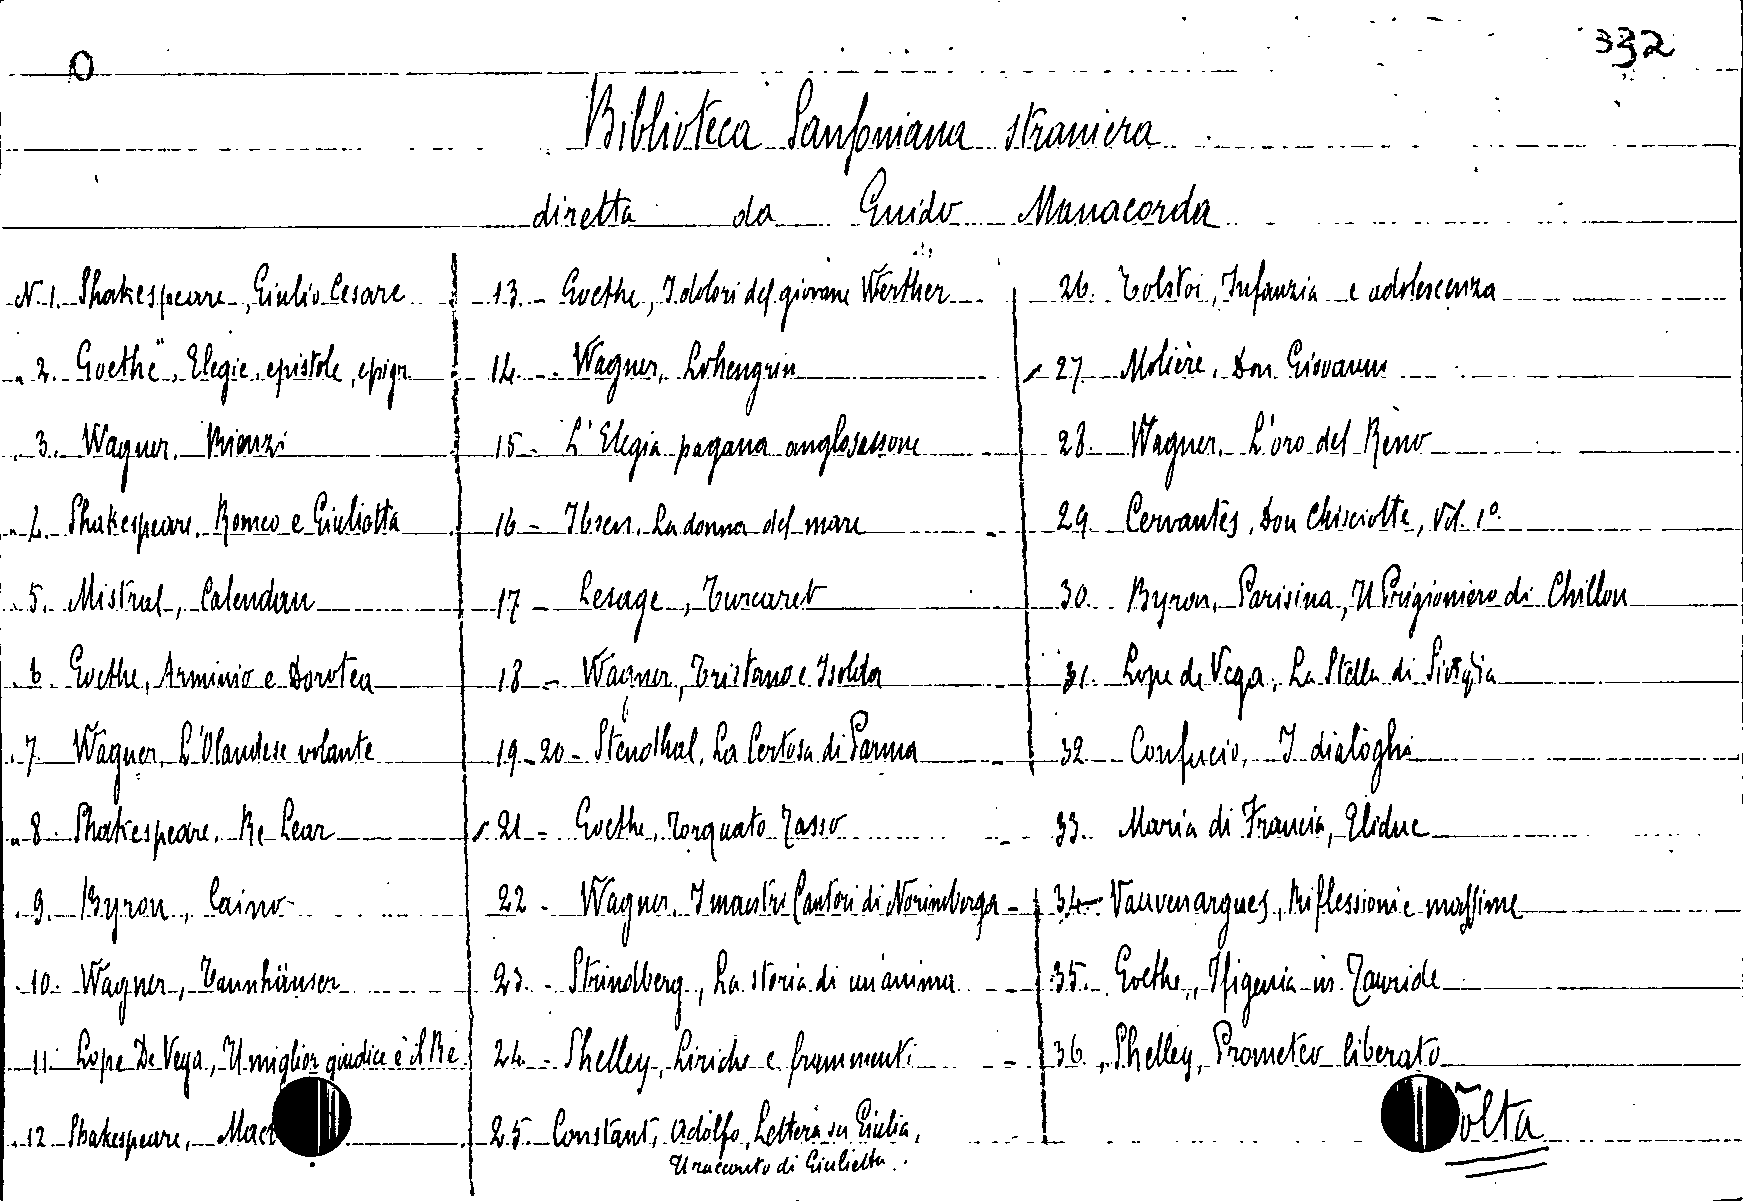 332
Biblioteca Sansoniana straniera
diretta da Guido Manacorda
N. 1. Shakespeare, Giulio Cesare
" 2. Goethe, Elegie, epistole, epigr.
" 3. Wagner, Rienzi
" 4. Shakespeare, Romeo e Giulietta
" 5. Mistral, Calendau
" 6. Goethe, Arminio e Dorotea
" 7. Wagner, L'Olandese volante
" 8. Shakespeare, Re Lear
" 9. Byron, Caino
" 10. Wagner, Tannhäuser
" 11. Lope De Vega, Il miglior giudice è il Re
" 12 Shakespeare, Mac
13. - Goethe, I dolori del giovane Werther
14. - Wagner, Lohengrin
15 - L'Elegia pagana anglosassone
16 - Ibsen, La donna del mare
17 - Lesage, Turcaret
18 - Wagner, Tristano e Isolda
19-20 - Stendhal, La Certosa di Parma
21 - Goethe, Torquato Tasso
22 - Wagner, I maestri Cantori di Norimberga
23. - Strindberg, La storia di un'anima
24. - Shelley, Liriche e frammenti
25. Constant, Adolfo, Lettera su Giulia,
Il racconto di Giulietta.
26. Tolstoi, Infanzia e adolescenza
27 Molière, Don Giovanni
28. Wagner, L'oro del Reno
29. Cervantes, Don Chisciotte, Vol. 1º
30. Byron, Parisina, Il Prigioniero di Chillon
31. Lope de Vega, La Stella di Siviglia
32. Confucio, I dialoghi
33. Maria di Francia, Eliduc
34 - Vauvenargues, Riflessioni e massime
35. Goethe, Ifigenia in Tauride
36. Shelley, Prometeo liberato
Volta